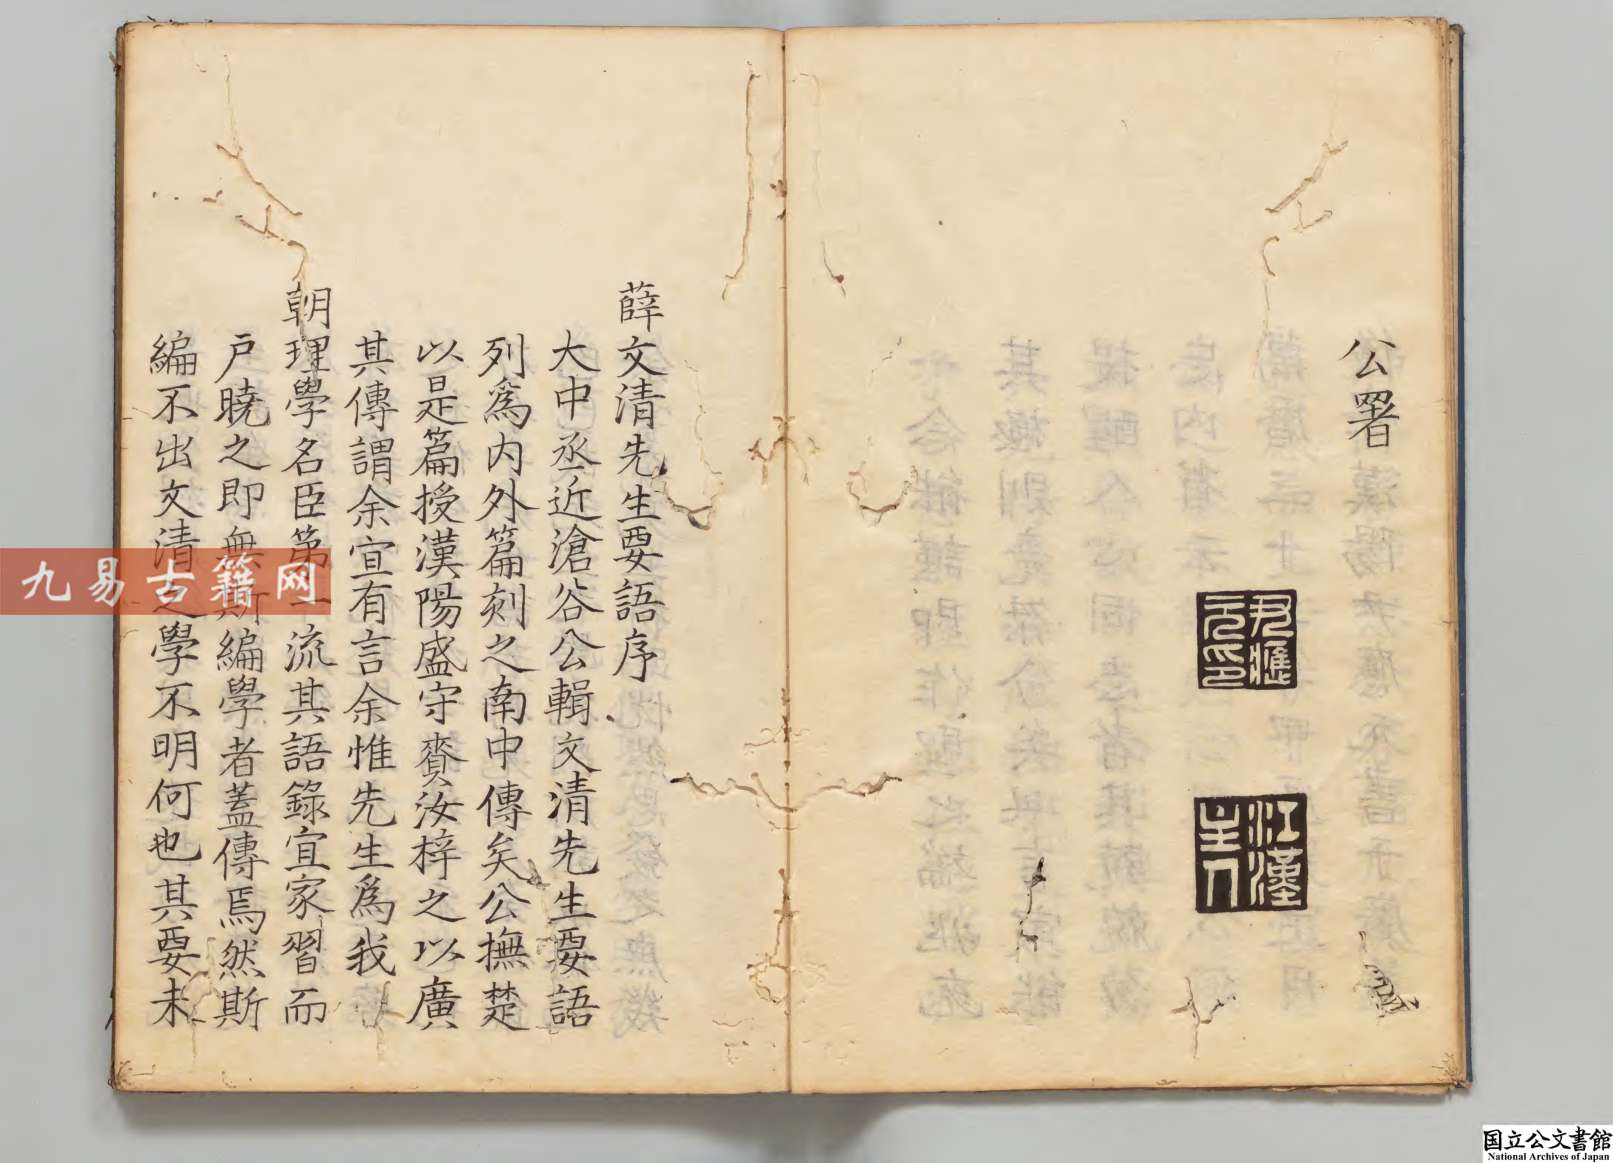 公署
尹應元印
江漢
薛文清先生要語序
大中丞近滄谷公輯文清先生要語
列爲内外篇刻之南中傳矣公撫楚
以是篇授漢陽盛守賫汝梓之以廣
其傳謂余宜有言余惟先生爲我
朝理學名臣第一流其語錄宜家習而
戶曉之即無斯編學者蓋傳焉然斯
編不出文清之學不明何也其要未
九易古籍网
国立公文書館
National Archives of Japan